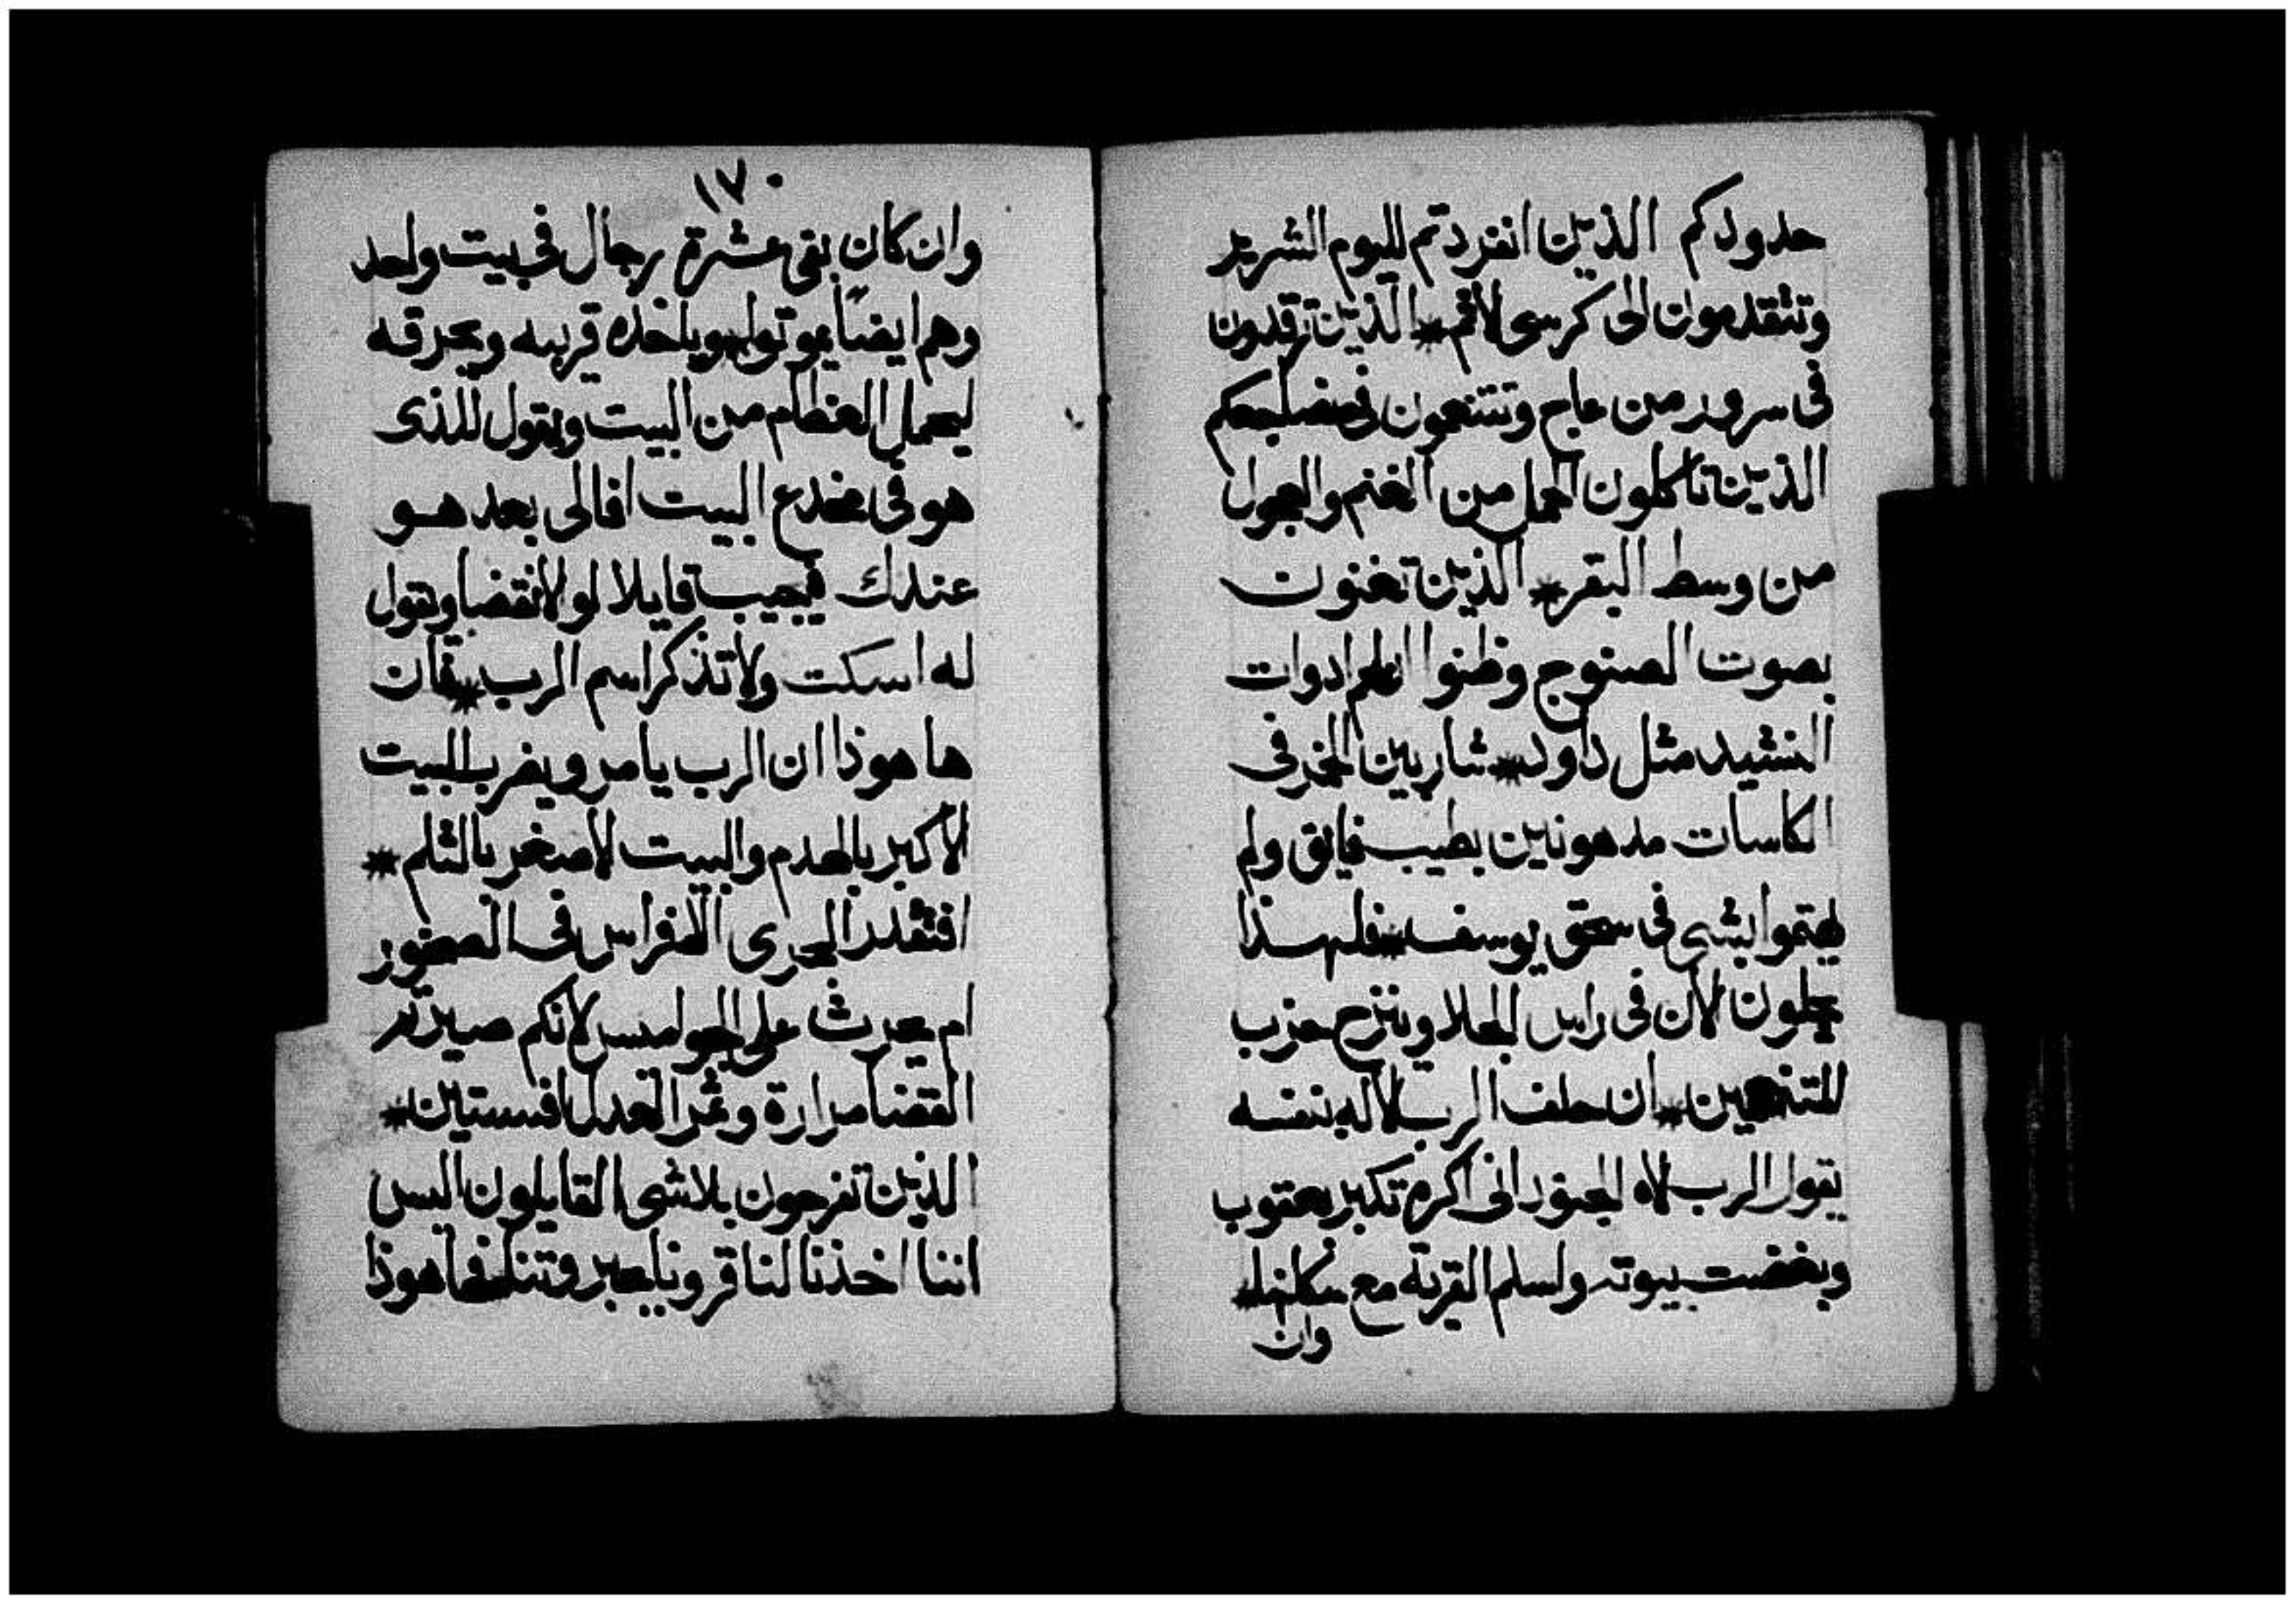 حدودكم الذين انفردتم لليوم الشرير
وتتقدمون الى كرسى لاثم * الذين ترقدون
فى سرور من عاج وتتنعمون فى مضاجعكم
الذين تاكلون الحمل من الغنم والعجول
من وسط البقر * الذين تغنون
بصوت الصنوج وظنوا انلهم ادوات
النشيد مثل داود * شاربين الخمر فى
الكاسات مدهونين بطيب فايق ولم
يهتموا بشى فى سحق يوسف * فلهذا
يجلون الان فى راس الجلا وينزح حزب
المتنعمين * ان حلف الرب لاله بنفسه
يقول الرب لاه الجنود انى اكره تكبر يعقوب
وبغضت بيوته ولسلم القرية مع سكانها *
وان
١٧٠
وان كان بقى عشرة رجال فى بيت واحد
وهم ايضا يموتوا * وياخذه قريبه ويحرقه
ليحمل العظام من البيت ويقول للذى
هو فى مخدع البيت افالى بعد هو
عندك فيجيب قايلا لو لانقضا ويقول
له اسكت ولا تذكر اسم الرب * فان
ها هوذا ان الرب يامر ويضرب البيت
الاكبر بالهدم والبيت لاصغر بالثلم *
افتقدر الجرى الافراس فى الصخور
ام يحرث على الجواميس لانكم صيرتم
القضا مرارة وثمر العدل افسنتين *
الذين تفرحون بلاشى القايلون اليس
اننا اخذنا لنا قرونا بعبروتنا فها هوذا